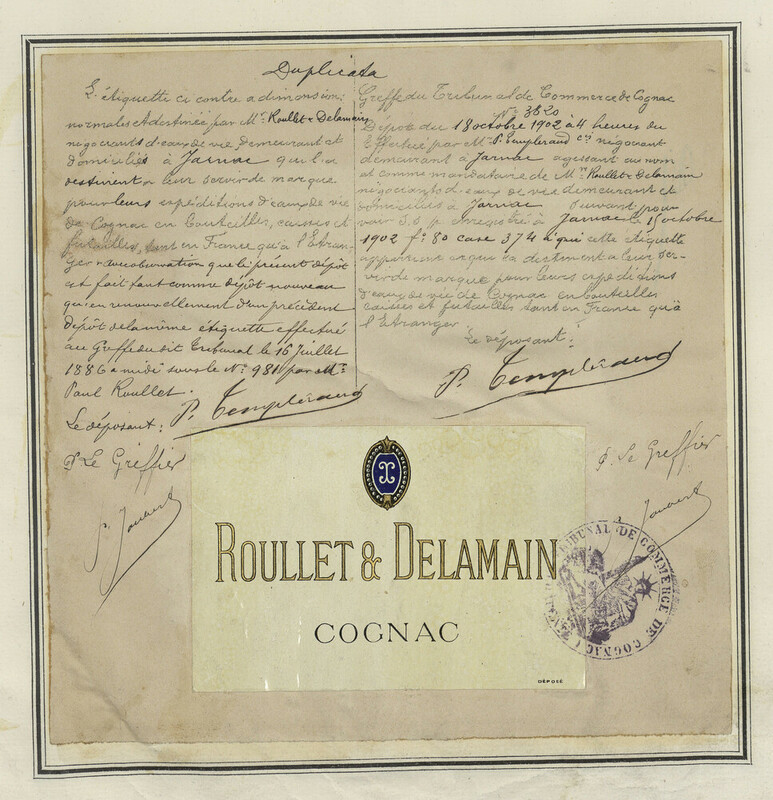 Duplicata
L'étiquette ci contre a dimensions
normales est destinée par Mrs Roullet & Delamain
négociants d'eaux de vie demeurant et
domiciliés à Jarnac qui la
destinent a leur servir de marque
pour leurs expéditions d'eaux de vie
de Cognac en bouteilles, caisses et
futailles, tant en France qu'à l'Etran-
ger avec observation que le présent dépôt
est fait tant comme dépôt nouveau
qu'en renouvellement d'un précédent
dépôt de la même étiquette effectué
au Greffe du dit Tribunal le 16 Juillet
1886 a midi sous le No 981 par Mr
Paul Roullet.
Le déposant : P. Templéraud
P. Le Greffier
Greffe du Tribunal de Commerce de Cognac
No 3620
Dépôt du 18 octobre 1902 à 4 heures du
Effectué par Mr P. Templéraud négociant
demeurant à Jarnac agissant au nom
et comme mandataire de Mrs Roullet & Delamain
négociants d'eaux de vie demeurant et
domiciliés à Jarnac suivant pou-
voir S.S.P. enregistré à Jarnac le 15 octobre
1902 fo 80 case 374 à qui cette étiquette
appartient et qui la destinent a leur ser-
vir de marque pour leurs expéditions
d'eaux de vie de Cognac en bouteilles
caisses et futailles tant en France qu'à
l'Etranger
Le déposant :
P. Templéraud
P. Le Greffier
ROULLET & DELAMAIN
COGNAC
DÉPOSÉ
TRIBUNAL DE COMMERCE DE COGNAC